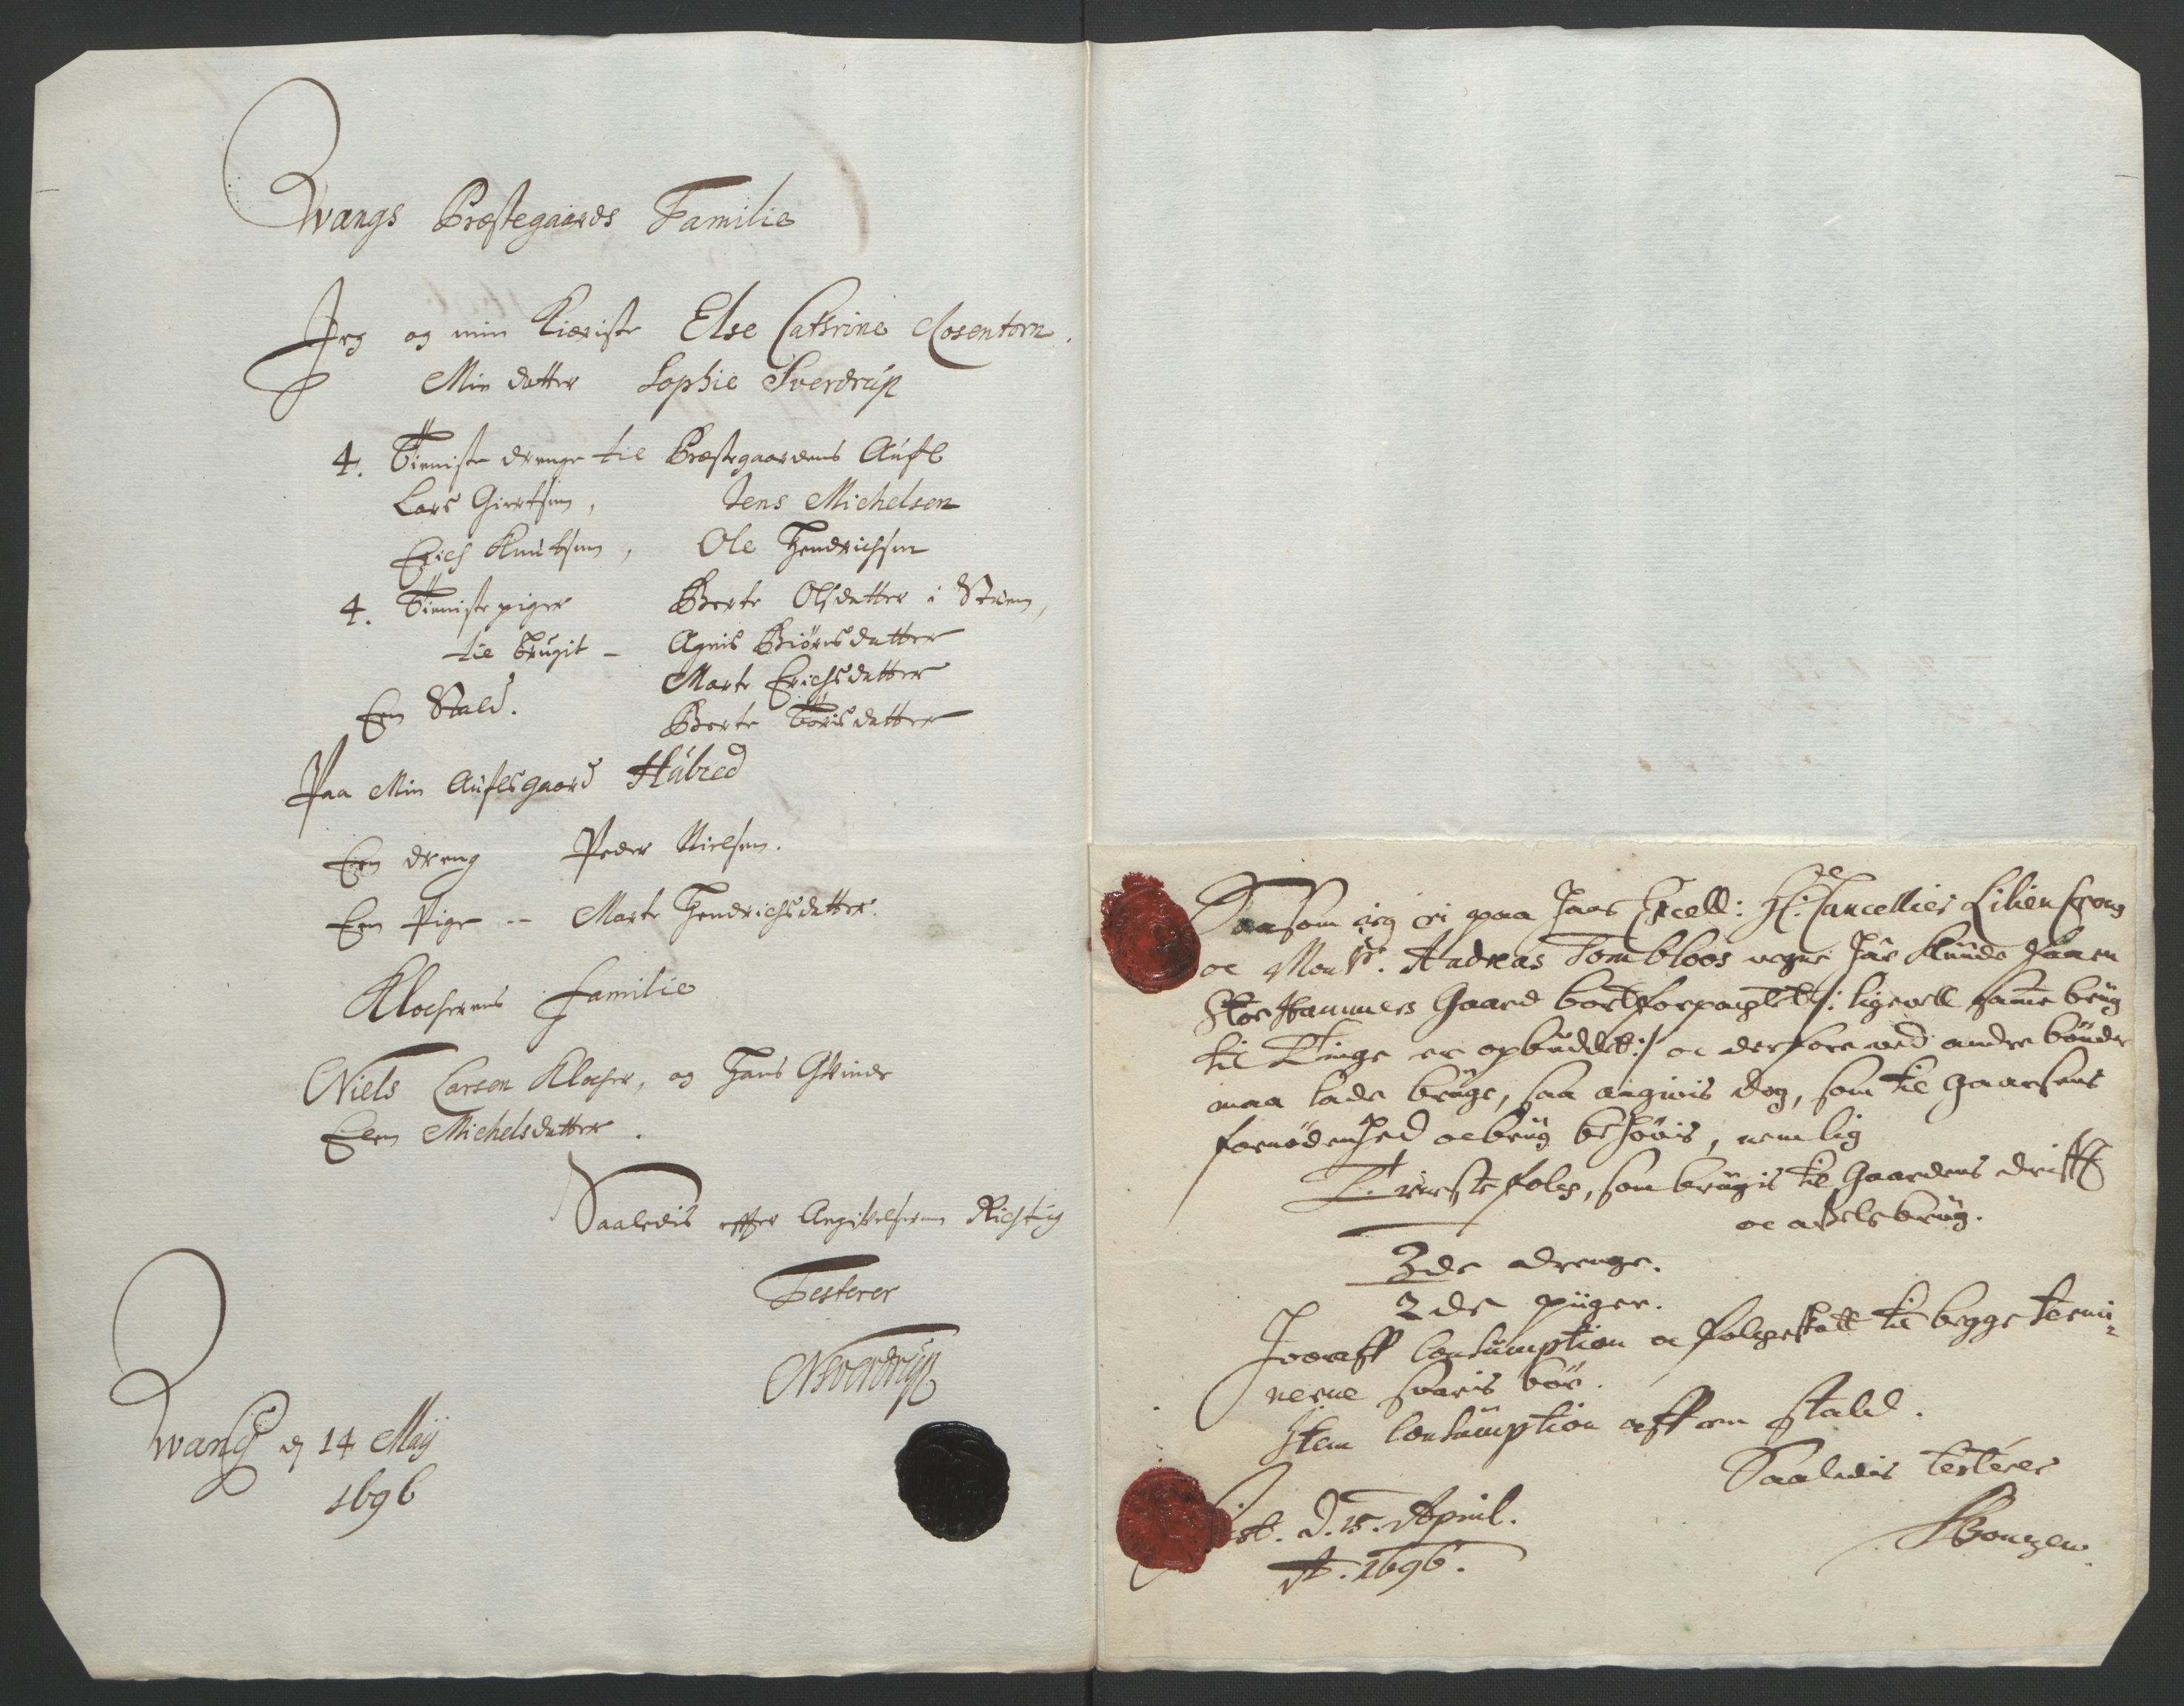 Wangs Præstegaards Familie
Jeg og min Kieriste Else Cathrine Rosentorn.
Min datter Sophie Sverdrup
4. Tieniste drenge til Præstegaardens Aufl
Lars Giertsen, Jens Michelsen
Erich Knutsen, Ole Hendrichsen
4. Tieniste piger Berte Olsdatter i Stuen,
til brugit - Agnis Biörnsdatter
Marte Erichsdatter
Een Stald. Berte Törisdatter
Paa Min Auflsgaard Hubred
Een dreng Peder Nielsen.
Een Pige -- Marte Hendrichsdatter.
Klocherens familie
Niels Larsen Klocher, og Hans Qvinde
Elen Michelsdatter.
Saaledis effter Angivelsen Richtig
Testerer
NSverdrup
Wang d 14 Maij
1696
Saasom jeg ei paa Hans Excell: Hr: Cancellies Liliencrons
oc Monsr. Andreas Tombloos vegne har kunde faaen
Stor Hammers Gaard bortforpagtet /: ligevell samme brug
til Tinge er opbuddet :/ oc derfore ved andre bönder
maa lade bruge, saa angivis dog, som til Gaarsens
fornödenhed oc brug behövis, nemlig
Tieneste folch, som brugis til Gaardens drifft
oc afvels brug.
3de drenge.
2de piiger.
Hvoraff Consumption oc folcheskatt til begge termi-
nerne svaris bör.
Item Consumption aff en stald.
Saaledis testerer
d. 15. April.
A. 1696.